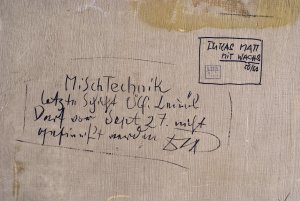 LUKAS MATT
MIT WACHS
Mischtechnik
letzte Schicht
Darf vor Sept. 27. nicht
gefirnißt werden